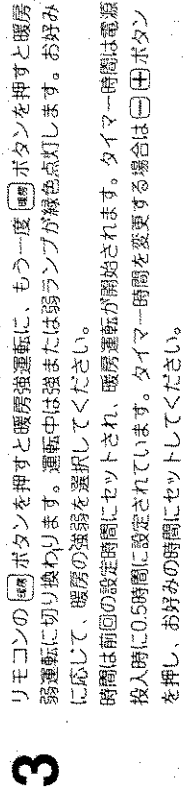 3
リモコンの[暖房]ボタンを押すと暖房強運転に、もう一度[暖房]ボタンを押すと暖房
弱運転に切り換わります。運転中は強または弱ランプが緑色点灯します。お好み
に応じて、暖房の強弱を選択してください。
時間は前回の設定時間にセットされ、暖房運転が開始されます。タイマー時間は電源
投入時に0.5時間に設定されています。タイマー時間を変更する場合は[−][+]ボタン
を押し、お好みの時間にセットしてください。